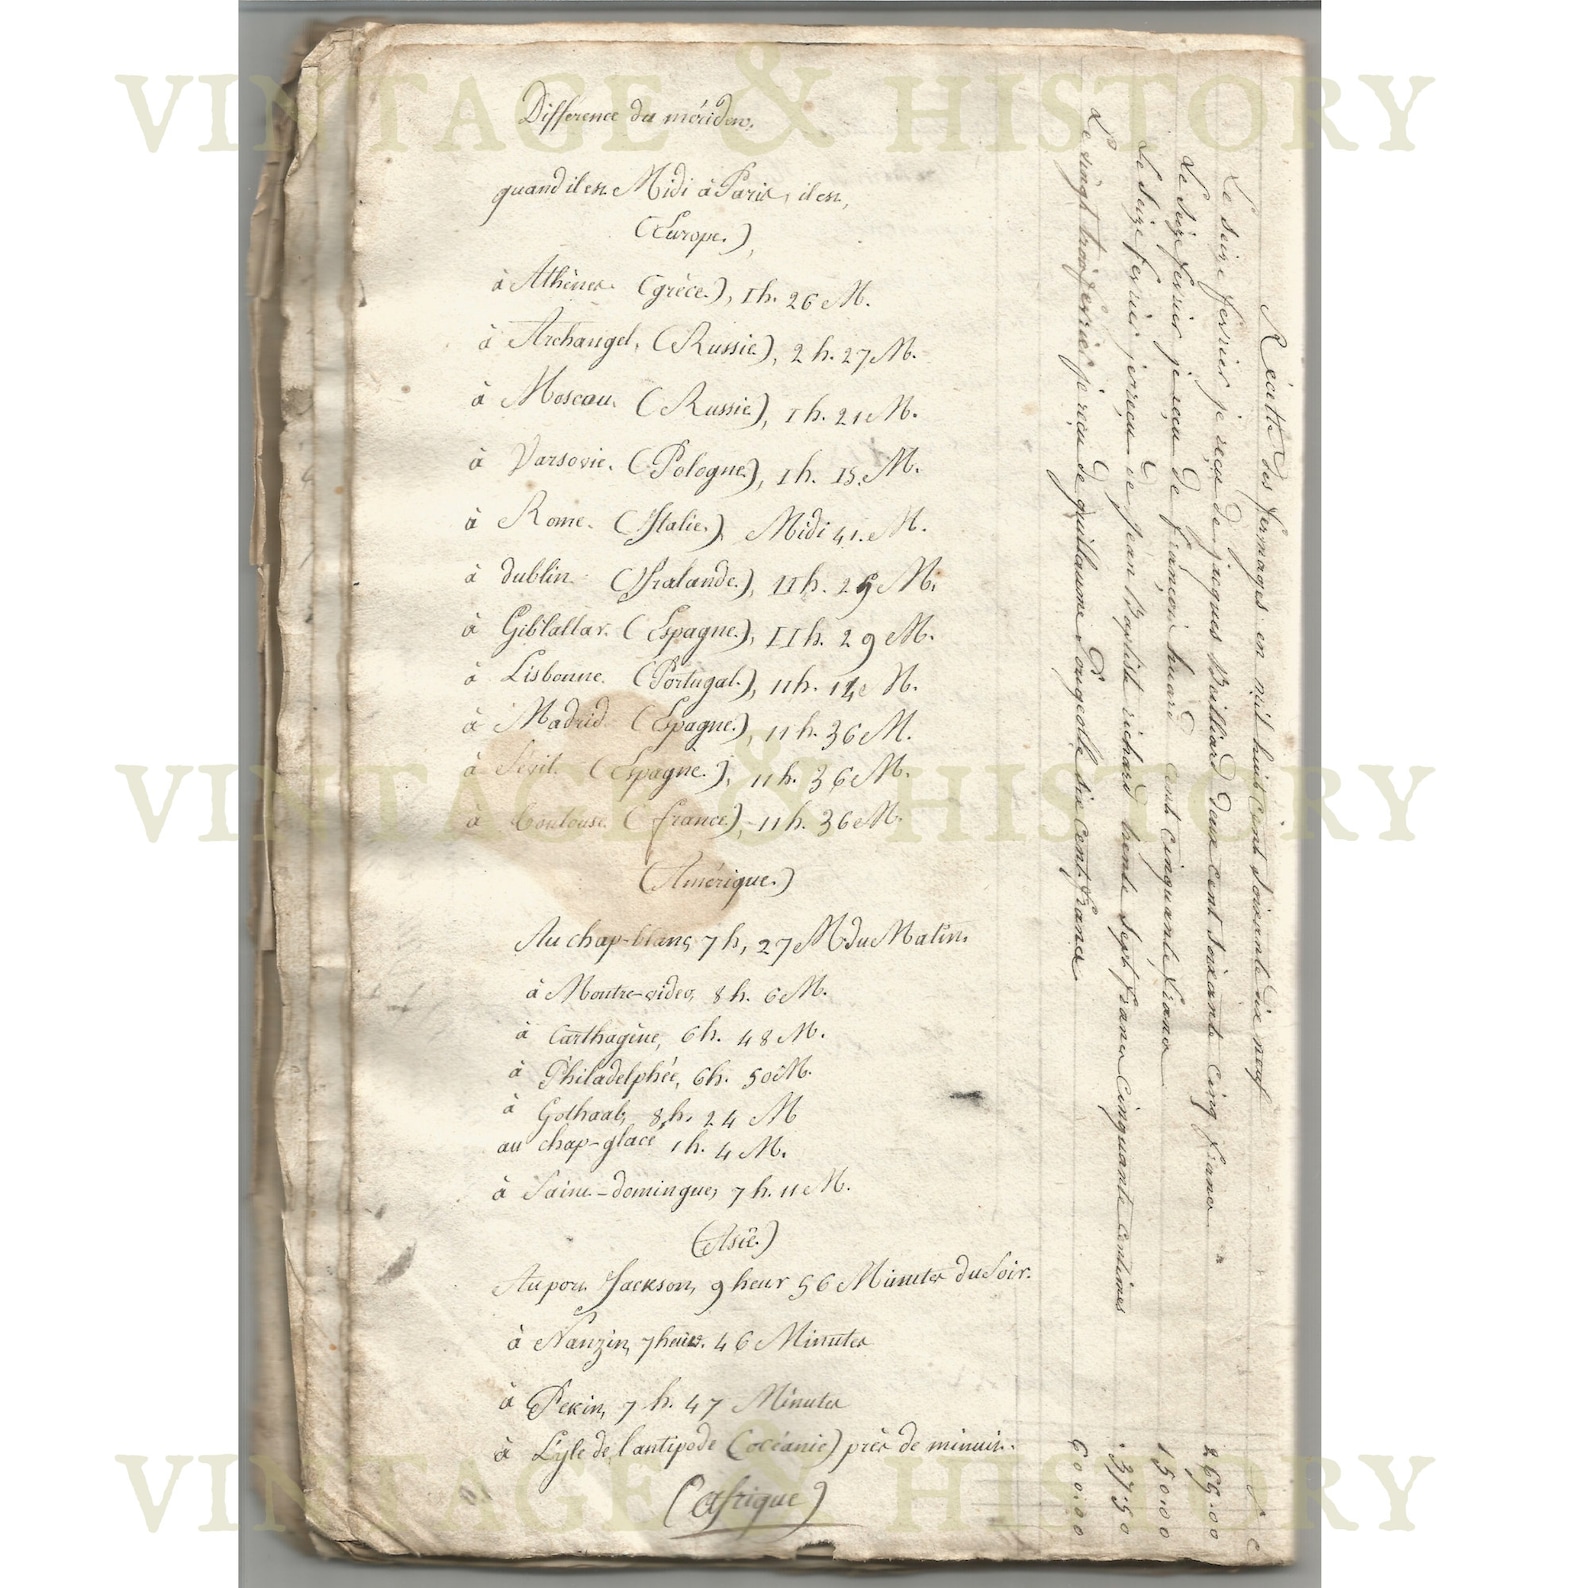 VINTAGE & HISTORY
Difference du méridien.
quand il est Midi à Paris, il est,
(Europe.),
à Athènes. (grèce.), 1h. 26 M.
à Archangel, (Russie), 2 h. 27 M.
à Moscou, (Russie), 1 h. 21 M.
à Varsovie. (Pologne), 1 h. 15. M.
à Rome. (Italie.), Midi 41. M.
à dublin (Iralande.), 11h. 29 M.
à Giblaltar. (Espagne.), 11h. 29 M.
à Lisbonne. (Portugal.), 11h. 14 M.
à Madrid. (Espagne.), 11 h. 36 M.
à Sevil. (Espagne.), 11 h. 36 M.
à Toulouse. (france.), 11 h. 36 M.
VINTAGE & HISTORY
(Amérique.)
Au chap-blanc, 7 h, 27 M du Matin.
à Montre-video, 8 h. 6 M.
à Carthagène, 6h. 48 M.
à Philadelphée, 6h. 50 M.
à Gothaab, 8 h. 24 M
au chap-glacé, 1 h. 4 M.
à Saint-domingue, 7 h. 11 M.
(Asie.)
Au port Jackson, 9 heur 56 Minutes du Soir.
à Nanzin, 7 heurs. 46 Minutes
à Pekin, 7 h. 47 Minutes
à L'yle de l'antipode (océanie) près de minuit.
VINTAGE & HISTORY
(Afrique)
Récette des fermages en mil huit cent Soixante dix neuf
f c
Le seize fevrier je reçu de jacques Bailliard deux cent Soixante cinq francs 265.00
Le seize fevrier je reçu de françois huard cent cinquante francs 150.00
Le Seize fevrier jerreçu de jean Baptiste richard trente Sept francs Cinquante centimes 37.50
Le vingt trois fevrier je reçu de guillaume Dougeolle six cent francs 600.00